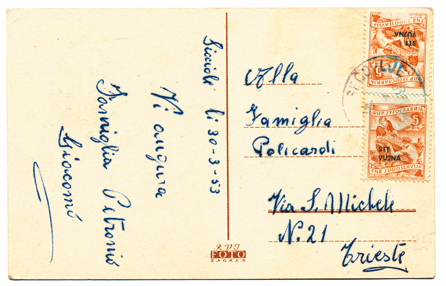 Siccioli li 30-3-53
Vi augura
Famiglia Petronio
Giacomo
Alla
Famiglia
Policardi
Via S. Michele
N. 21
Trieste
FOTO
ZAGREB
STT
VUJNA
5
STT
VUJNA
5
FNR JUGOSLAVIJA